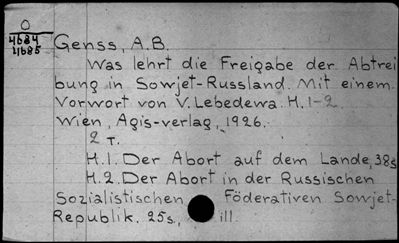 O
4684
4685
Genss, A.B.
Was lehrt die Freigabe der Abtrei
bung in Sowjet-Russland. Mit einem
Vorwort von V. Lebedewa. H. 1-2.
Wien, Agis-verlag, 1926.
2 T.
H.1. Der Abort auf dem Lande, 38s
H.2. Der Abort in der Russischen
Sozialistischen Föderativen Sowjet-
Republik. 25s., ill.